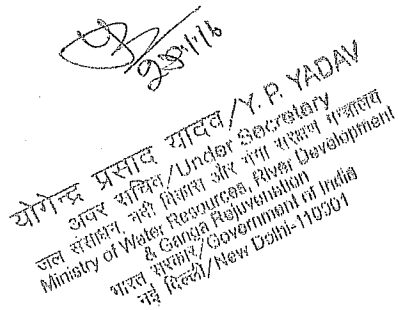 28/1/16
योगेन्द्र प्रसाद यादव/Y. P. YADAV
अवर सचिव/Under Secretary
जल संसाधन, नदी विकास और गंगा संरक्षण मंत्रालय
Ministry of Water Resources, River Development
& Ganga Rejuvenation
भारत सरकार/Government of India
नई दिल्ली/New Delhi-110001